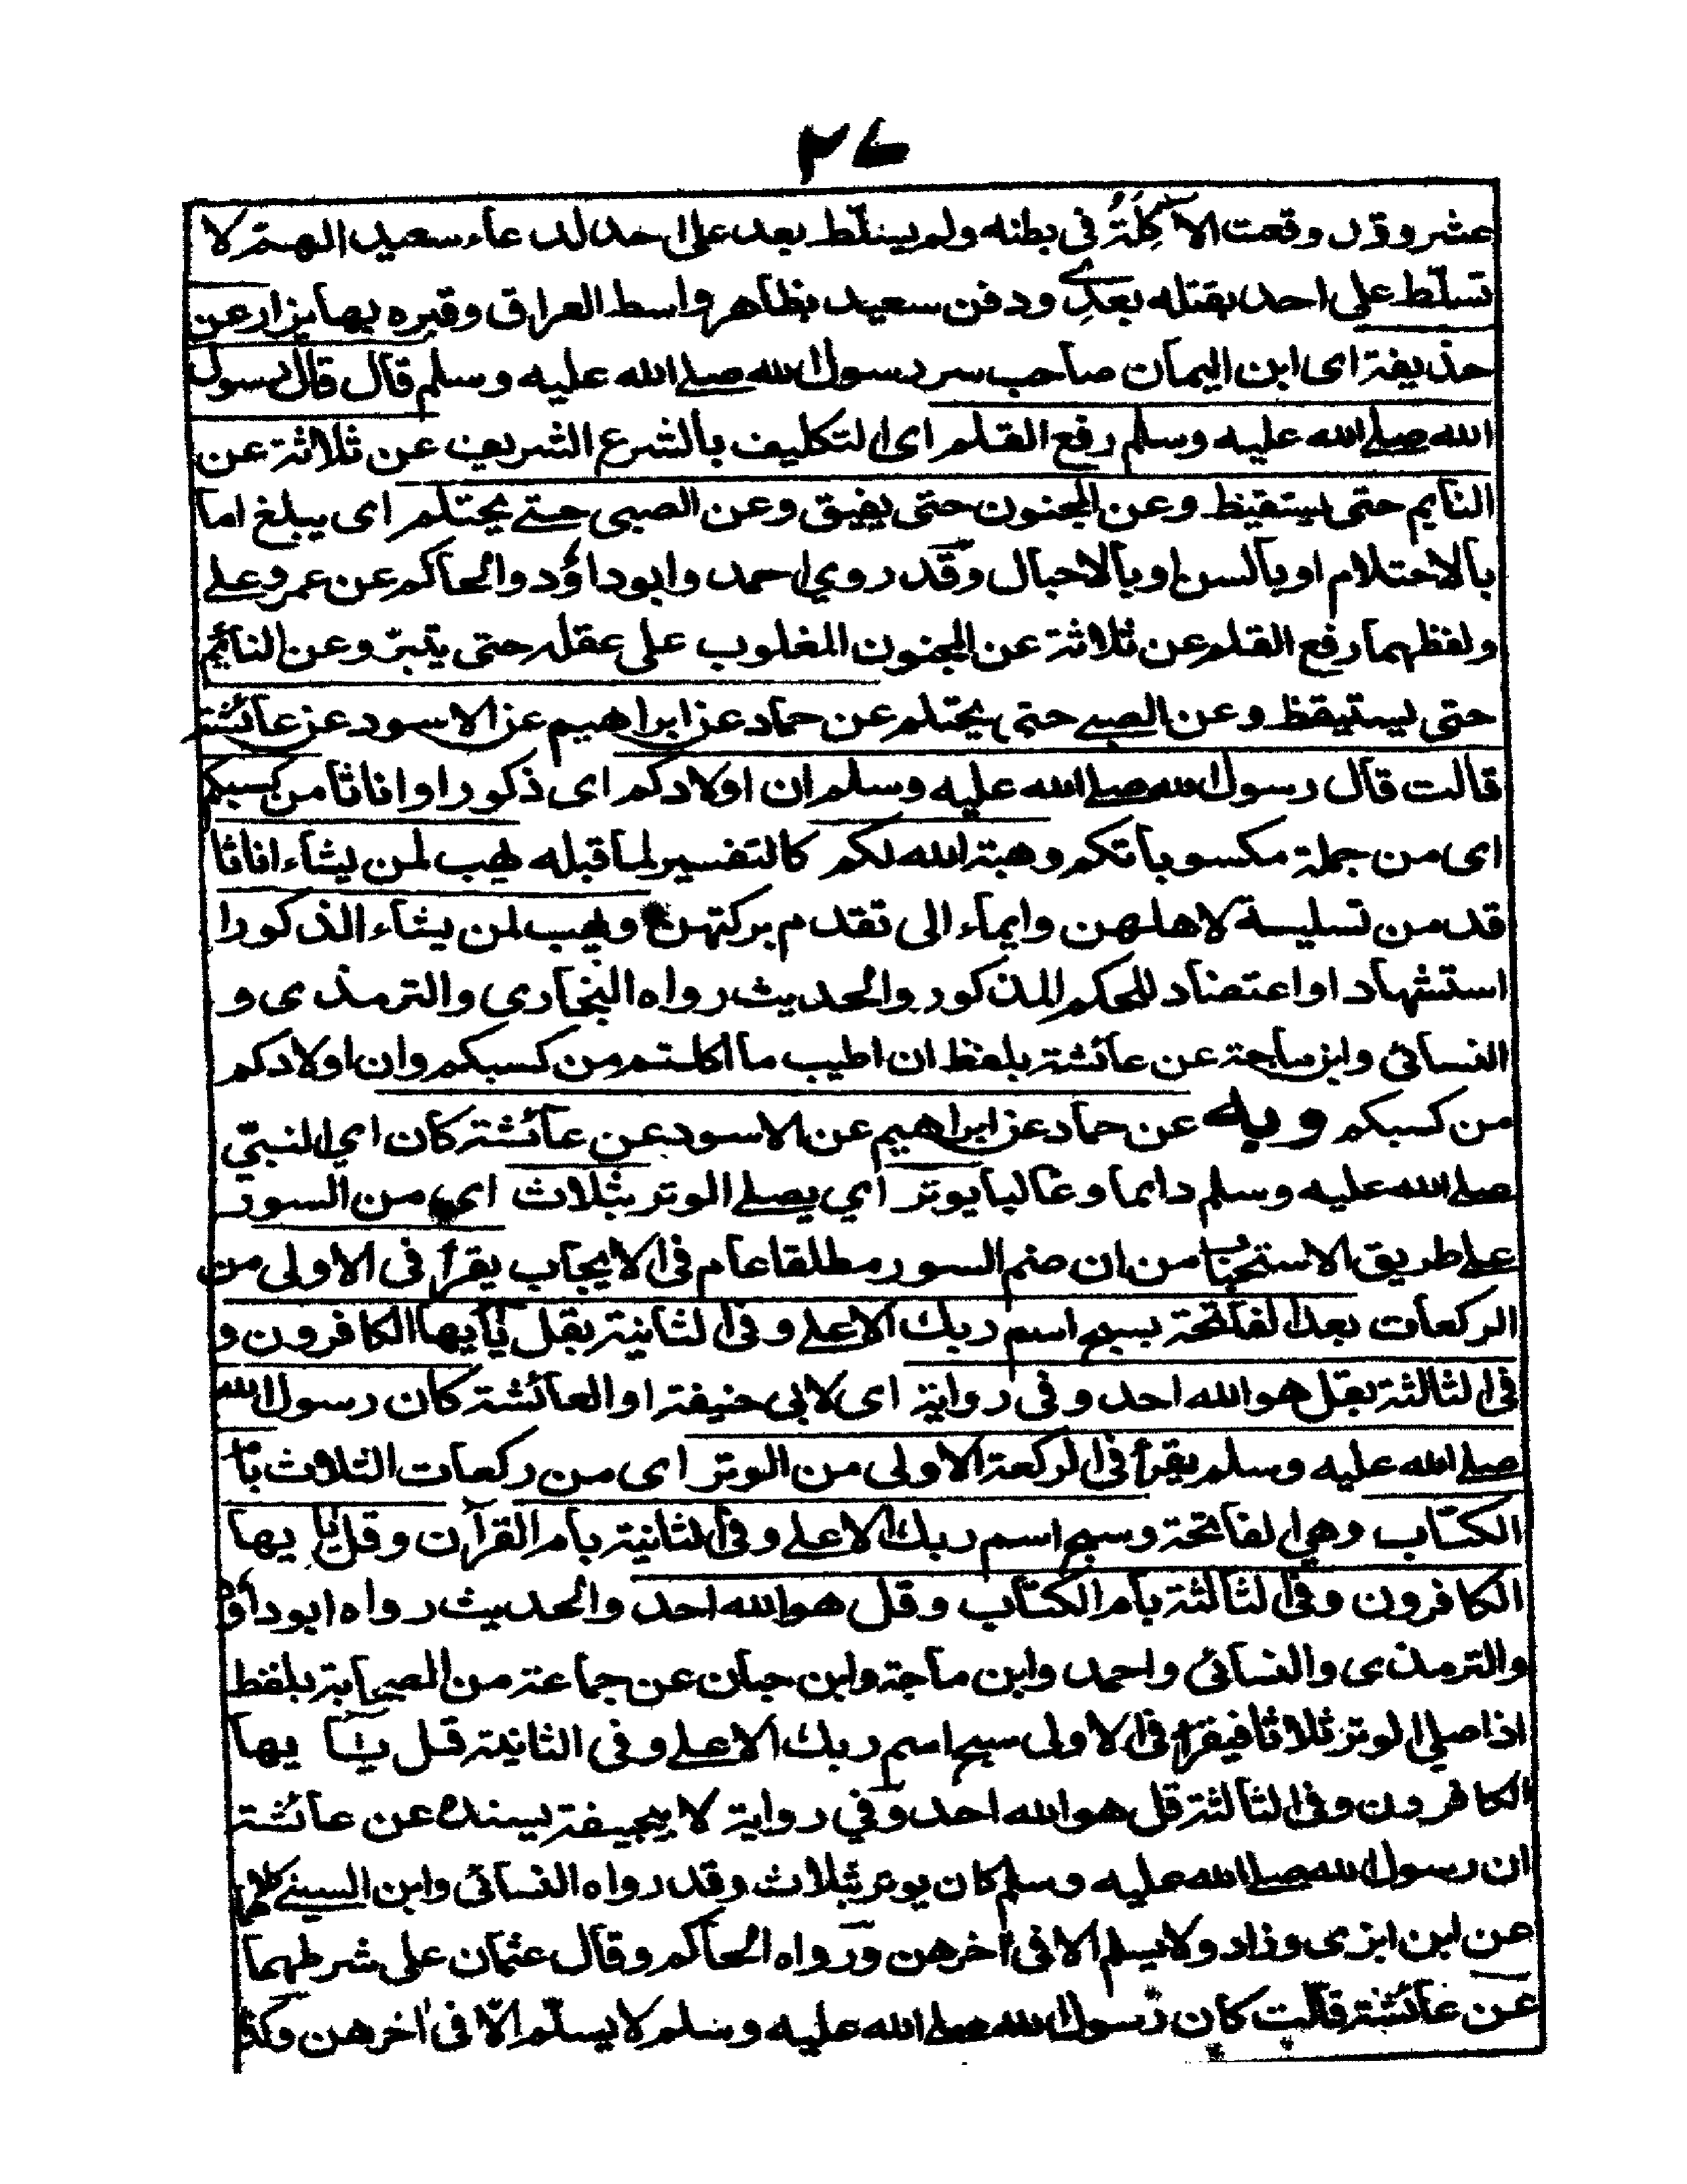 ٢٤
عشر وقد وقعت الاكلة في بطنه ولم يسلّط بعد على احد لدعاء سعيد اللهمّ لا
تسلّط على احد يقتله بعدي ودفن سعيد بظاهر واسط العراق وقبره بها يزار عن
حذيفة اى ابن اليمان صاحب سر رسول الله صلى الله عليه وسلم قال قال رسول
الله صلى الله عليه وسلم رفع القلم اى التكليف بالشرع الشريف عن ثلاثة عن
النايم حتى يستقيظ وعن المجنون حتى يفيق وعن الصبى حتى يحتلم اى يبلغ اما
بالاحتلام او بالسن او بالاحبال وقد روي احمد وابو داؤد والحاكم عن عمر وعلى
ولفظهما رفع القلم عن ثلاثة عن المجنون المغلوب على عقله حتى يتبرّ وعن النائم
حتى يستيقظ وعن الصبى حتى يحتلم عن حماد عن ابراهيم عن الاسود عن عائشة
قالت قال رسول الله صلى الله عليه وسلم ان اولادكم اى ذكورا واناثا من كسبكم
اى من جملة مكسوباتكم وهبة الله لكم كالتفسير لما قبله يهب لمن يشاء اناثا
قد من تسلية لاهلهن وايماء الى تقدم بركتهن ويهب لمن يشاء الذكورا
استشهاد او اعتضاد للحكم المذكور والحديث رواه البخارى والترمذى و
النسائى وابن ماجة عن عائشة بلفظ ان اطيب ما اكلتم من كسبكم وان اولادكم
من كسبكم وبه عن حماد عن ابراهيم عن الاسود عن عائشة كان اي النبيّ
صلى الله عليه وسلم دايما وغالبا يوتر أي يصلى الوتر بثلاث اى من السور
على طريق الاستحباب من ان ضم السور مطلقا عام فى الايجاب يقرأ فى الاولى من
الركعات بعد الفاتحة بسبح اسم ربك الاعلى وفى الثانية بقل يأيها الكافرون و
فى الثالثة بقل هو الله احد وفى رواية اى لابى حنيفة او العائشة كان رسول الله
صلى الله عليه وسلم يقرأ فى الركعة الاولى من الوتر اى من ركعات الثلاث بأم
الكتاب وهي الفاتحة وسبح اسم ربك الاعلى وفى الثانية بام القرآن وقل يا يها
الكافرون وفى الثالثة بام الكتاب وقل هو الله احد والحديث رواه ابو داؤد
والترمذى والنسائى واحمد وابن ماجة وابن حبان عن جماعة من الصحابة بلفظ
اذا صلى الوتر ثلاثا فيقرأ فى الاولى سبح اسم ربك الاعلى وفى الثانية قل يا يها
الكافرون وفى الثالثة قل هو الله احد وفي رواية لا بسنده عن عائشة
ان رسول الله صلى الله عليه وسلم كان يوتر بثلاث وقد رواه النسائى وابن السنى كلاهما
عن ابن ابزى وزاد ولا يسلم الا فى آخرهن ورواه الحاكم وقال عثمان على شرطهما
عن عائشة قالت كان رسول الله صلى الله عليه وسلم لا يسلّم الّا فى اخرهن وكذا